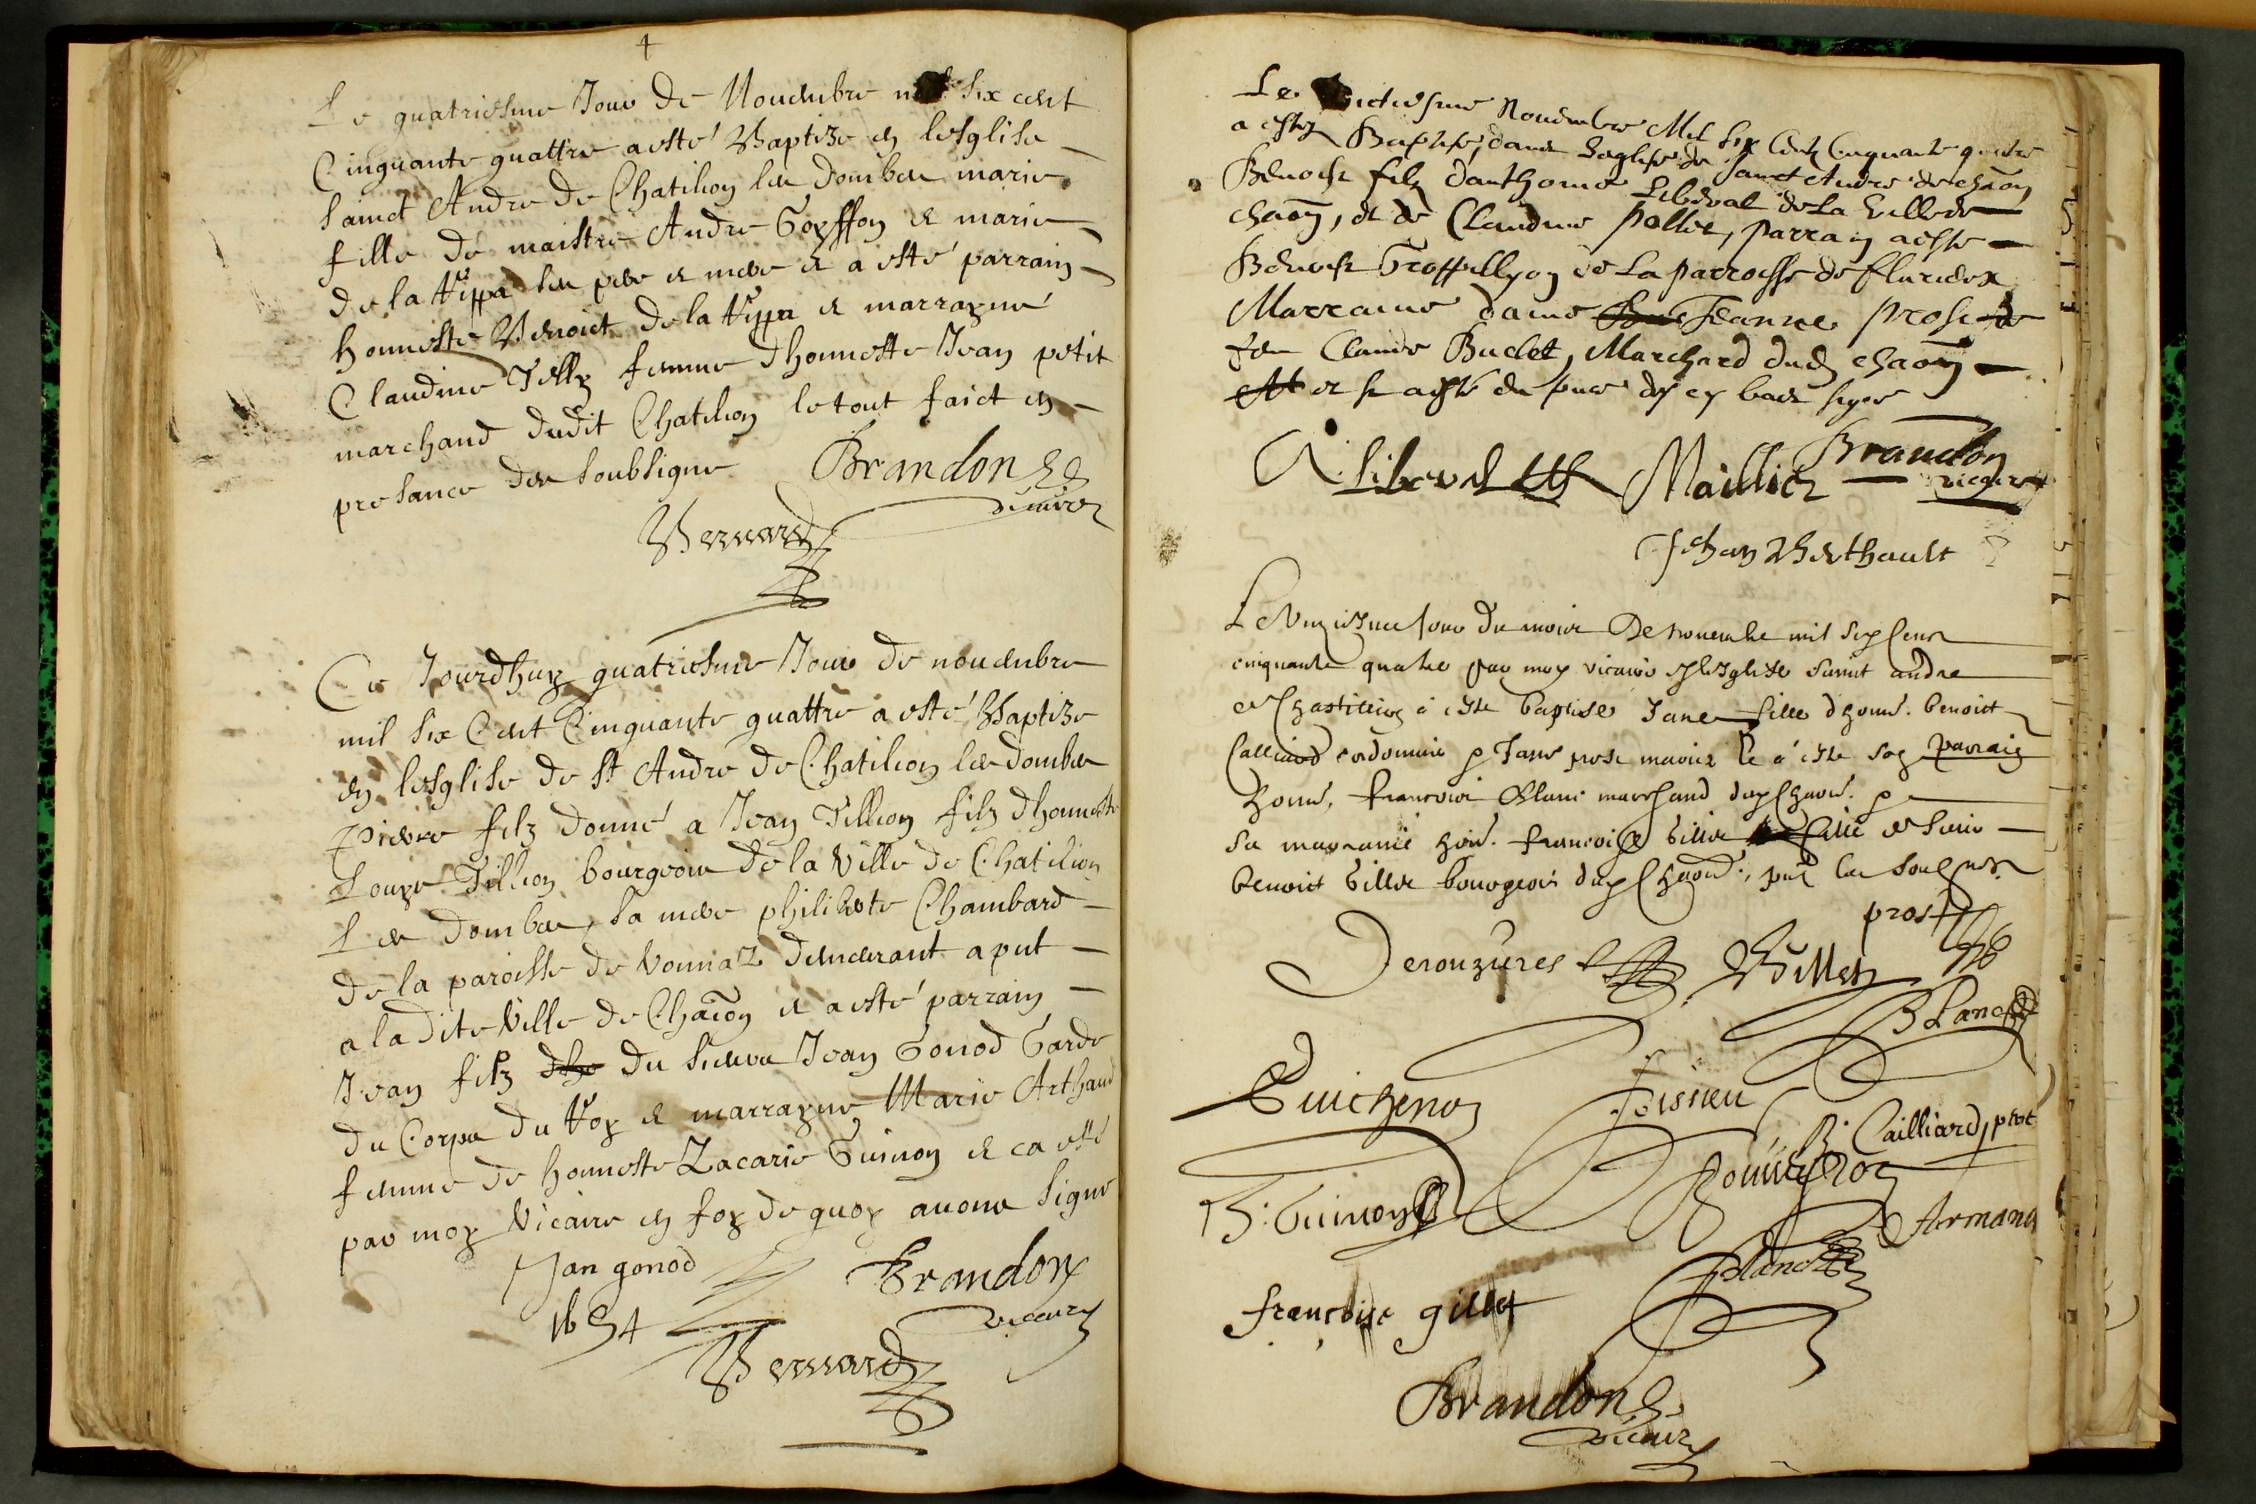 Le quatriesme Jour de Nouembre mil six cent
Cinquante quattre a esté Baptize en lesglise
sainct Andre de Chatilion les dombes marie
fille de maistre Andre Goyffon et marie
de la Teyssa ses pere et mere et a esté parrain
honneste Benoict de la Teyssa et marrayne
Claudine Telly femme dhonneste Jean petit
marchand dudit Chatilion le tout faict en
presance des soubsigne Brandon
vicaire
Bernard
Ce Jourdhuy quatriesme Jour de nouembre
mil six Cent Cinquante quattre a esté Baptize
en lesglise de St Andre de Chatilion les dombes
Pierre filz donné a Jean Tillion filz dhonneste
Louys Tillion bourgeois de la Ville de Chatilion
Les dombes, sa mere philiberte Chambard
de la paroisse de vonnaz demeurant a put
a ladite Ville de Chaōn et a esté parrain
Jean filz du sieur Jean Gonod Garde
du Corps du Roy et marrayne Marie Arthaud
femme de honneste Zacarie Guinon et ca esté
par moy Vicaire en foy de quoy auons signe
Jan gonod Brandon
1654 vicaire
Bernard
Le huictiesme Nouembre Mil six Centz Cinquante quatre
a esthez Baptise, dans Leglise de sainct Andre de chaōn
Benoist filz danthoine Liberal de La ville de
chaōn, et de Claudine pollet, parrain a esste
Benoist Groffillyon de La parrosse de flurieux
Marraine dame Jeanne prost de
feu Claude Buclet, Marchard dud chaōn
et a esté en pnce des cy bas signes
A. Liberal Maillier Brandon
vicaire
Jehan Berthault
Le vingiesme Jour du mois De nouembe mil six cens
cinquante quatre par moy vicaire en lesglise sainct andre
de Chastillion à este baptise Jane fille dhonn. benoict
Calliard cordonnier et Jane prost mariez et a este son parrain
honn. francois blanc marchand dud Chaon. et
sa marraine hon. francoise Gillet fille de sieur
benoict Gillet bourgeois dud Chaon., pnt les soubsnes.
prost
Derouzures Billet
BLanc
Guichenon Teissieu
B. Cailliard, prot
B. Guinon Bouueyron
Armand
Blanc
françoise gillet
Brandon
vicaire